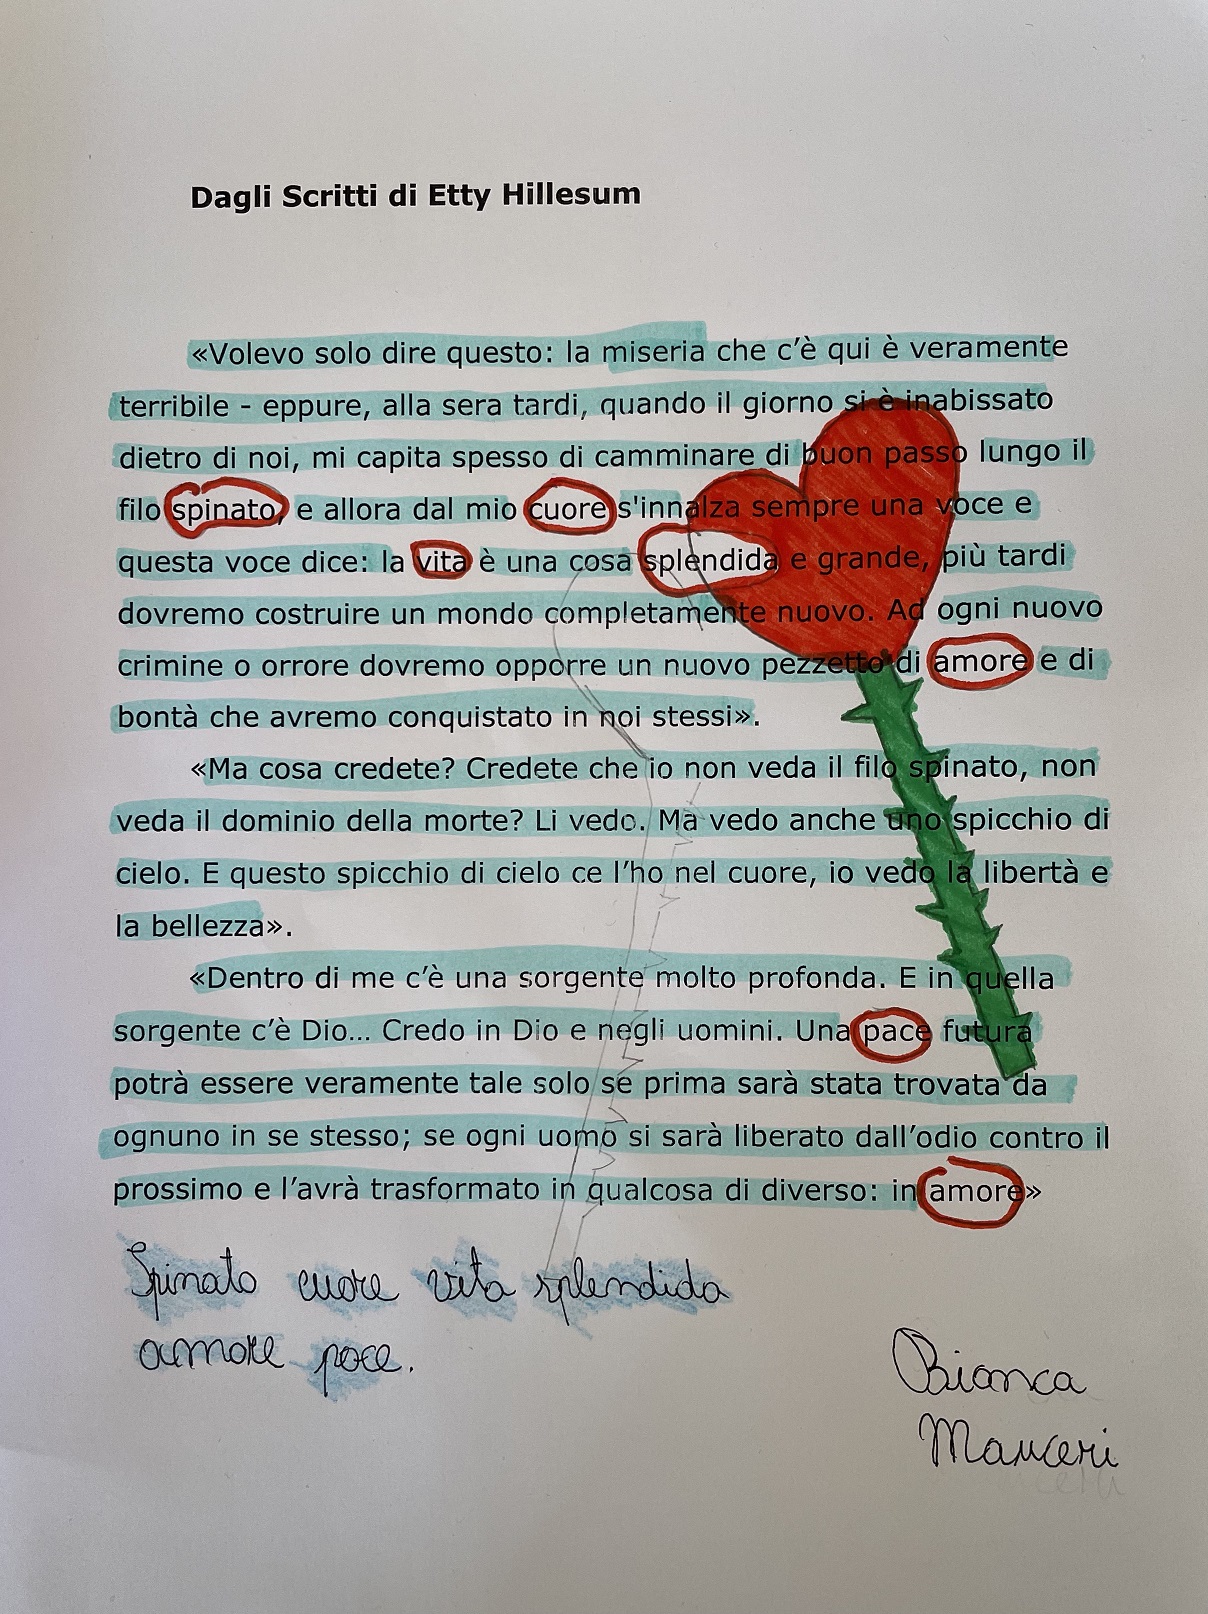 Dagli Scritti di Etty Hillesum
«Volevo solo dire questo: la miseria che c’è qui è veramente
terribile - eppure, alla sera tardi, quando il giorno si è inabissato
dietro di noi, mi capita spesso di camminare di buon passo lungo il
filo spinato, e allora dal mio cuore s'innalza sempre una voce e
questa voce dice: la vita è una cosa splendida e grande, più tardi
dovremo costruire un mondo completamente nuovo. Ad ogni nuovo
crimine o orrore dovremo opporre un nuovo pezzetto di amore e di
bontà che avremo conquistato in noi stessi».
«Ma cosa credete? Credete che io non veda il filo spinato, non
veda il dominio della morte? Li vedo. Ma vedo anche uno spicchio di
cielo. E questo spicchio di cielo ce l’ho nel cuore, io vedo la libertà e
la bellezza».
«Dentro di me c’è una sorgente molto profonda. E in quella
sorgente c’è Dio... Credo in Dio e negli uomini. Una pace futura
potrà essere veramente tale solo se prima sarà stata trovata da
ognuno in se stesso; se ogni uomo si sarà liberato dall’odio contro il
prossimo e l’avrà trasformato in qualcosa di diverso: in amore»
Spinato cuore vita splendida
amore pace.
Bianca
Manceri